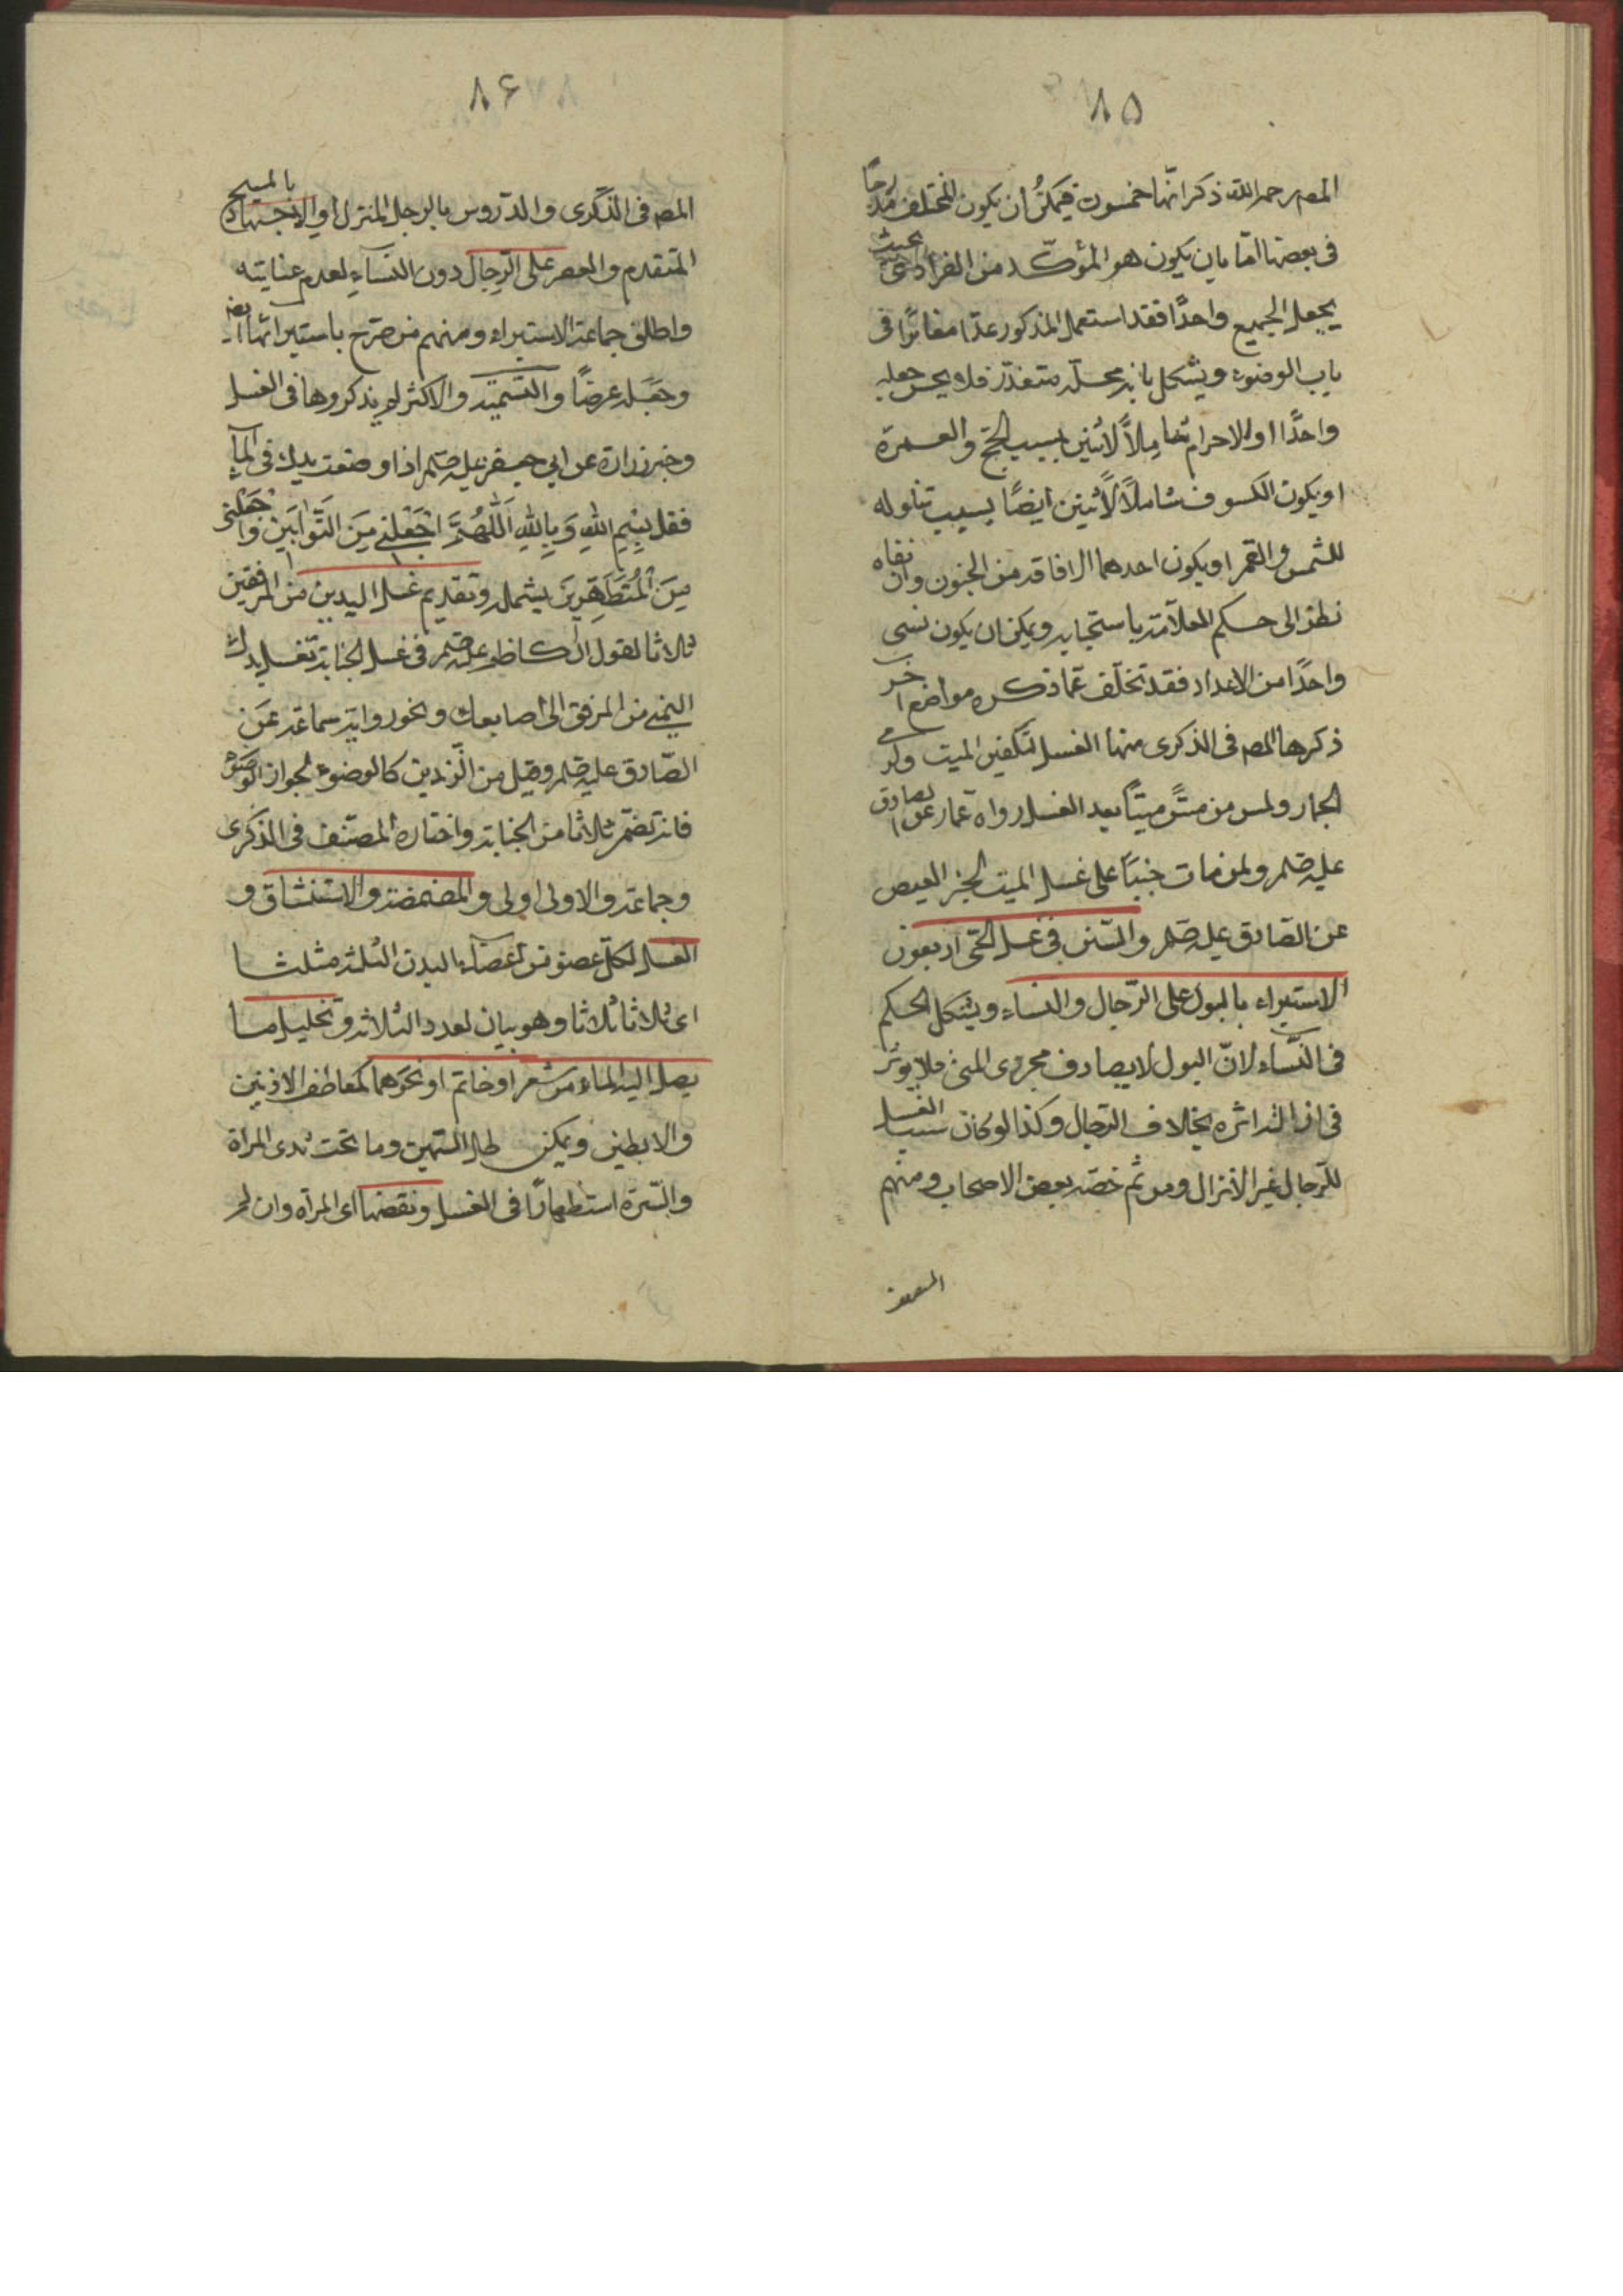 ٨٥
المص رحمه الله ذكر انها خمسون فيمكن ان يكون المختلف متدرجا
في بعضها امّا بان يكون هو المؤكّد من الفرادى بحيث
يجعل الجميع واحدًا فقد استعمل المذكور عدّا مغايرًا في
باب الوضوء ويشكل بانه محلّه متعذّر فلا يحسن جعله
واحدًا او الاحرام شاملاً لاثنين بسبب الحجّ والعمرة
او يكون الكسوف شاملاً لاثنين ايضًا بسبب تناوله
للشمس والقمر او يكون احدهما الافاقه من الجنون وان نفاه
نظرا الى حكم العلاّمة باستحبابه ويمكن ان يكون نسى
واحدًا من الاعداد فقد تخلّف عمّا ذكره مواضع اخر
ذكرها المص في الذكرى منها الغسل لتكفين الميت ولرمي
الجمار ولمن مسّ ميتًا بعد الغسل رواه عمار عن الصادق
عليه صلم ولمن مات جنبًا على غسل الميت لخبر العيص
عن الصادق عليه صلم والسنن في غسل الحىّ اربعون
الاستبراء بالبول على الرّجال والنساء ويشكل الحكم
في النّساء لانّ البول لا يصادف مجرى المنى فلا يوثر
في ازالة اثره بخلاف الرجال وكذا لو كان سبب الغسل
للرّجال غير الانزال ومن ثم خصّه بعض الاصحاب ومنهم
المصنف
٨۶
المص في الذّكرى والدّروس بالرجل المنزل او الاجتهاد بالمسح
المتقدم والعصر على الرّجال دون النساء لعدم عنايته
واطلق جماعة الاستبراء ومنهم من صرّح باستبرائها ايضا
وجعله عرضًا والتسمية والاكثر لم يذكروها في الغسل
وخبر زرارة عن ابي جعفر عليه صلم اذا وضعت يدك في المآء
فقل بِسْمِ اللهِ وَبِاللهِ اَللّٰهُمَّ اجْعَلْنِي مِنَ التَّوّابِينَ وَاجْعَلْنِي
مِنَ الْمُتَطَهِّرِينَ يشمله وتقديم غسل اليدين من المرفقين
ثلاثا لقول الكاظم عليه صلم في غسل الجنابة تغسل يدك
اليمنى من المرفق الى اصابعك ونحو رواية سماعة عن
الصّادق عليه صلم وقيل من الزّندين كالوضوء لجواز الوضوء
فانه تضمّن ثلاثا من الجنابة واختاره المصنّف في الذكرى
وجماعة والاولى اولى والمضمضة والاستنشاق و
الغسل لكلّ عضو من اعضاء البدن الثلثة مثلثا
اي ثلاثا ثلاثا وهو بيان لعدد الثلاثه وتخليل ما
يصل اليه الماء من شعر او خاتم او نحوهما كمعاطف الاذنين
والابطين ويمكن لها السمين وما تحت ثدى المراة
والسّرة استظهارًا في الغسل ونقضها اى المراة وان لم